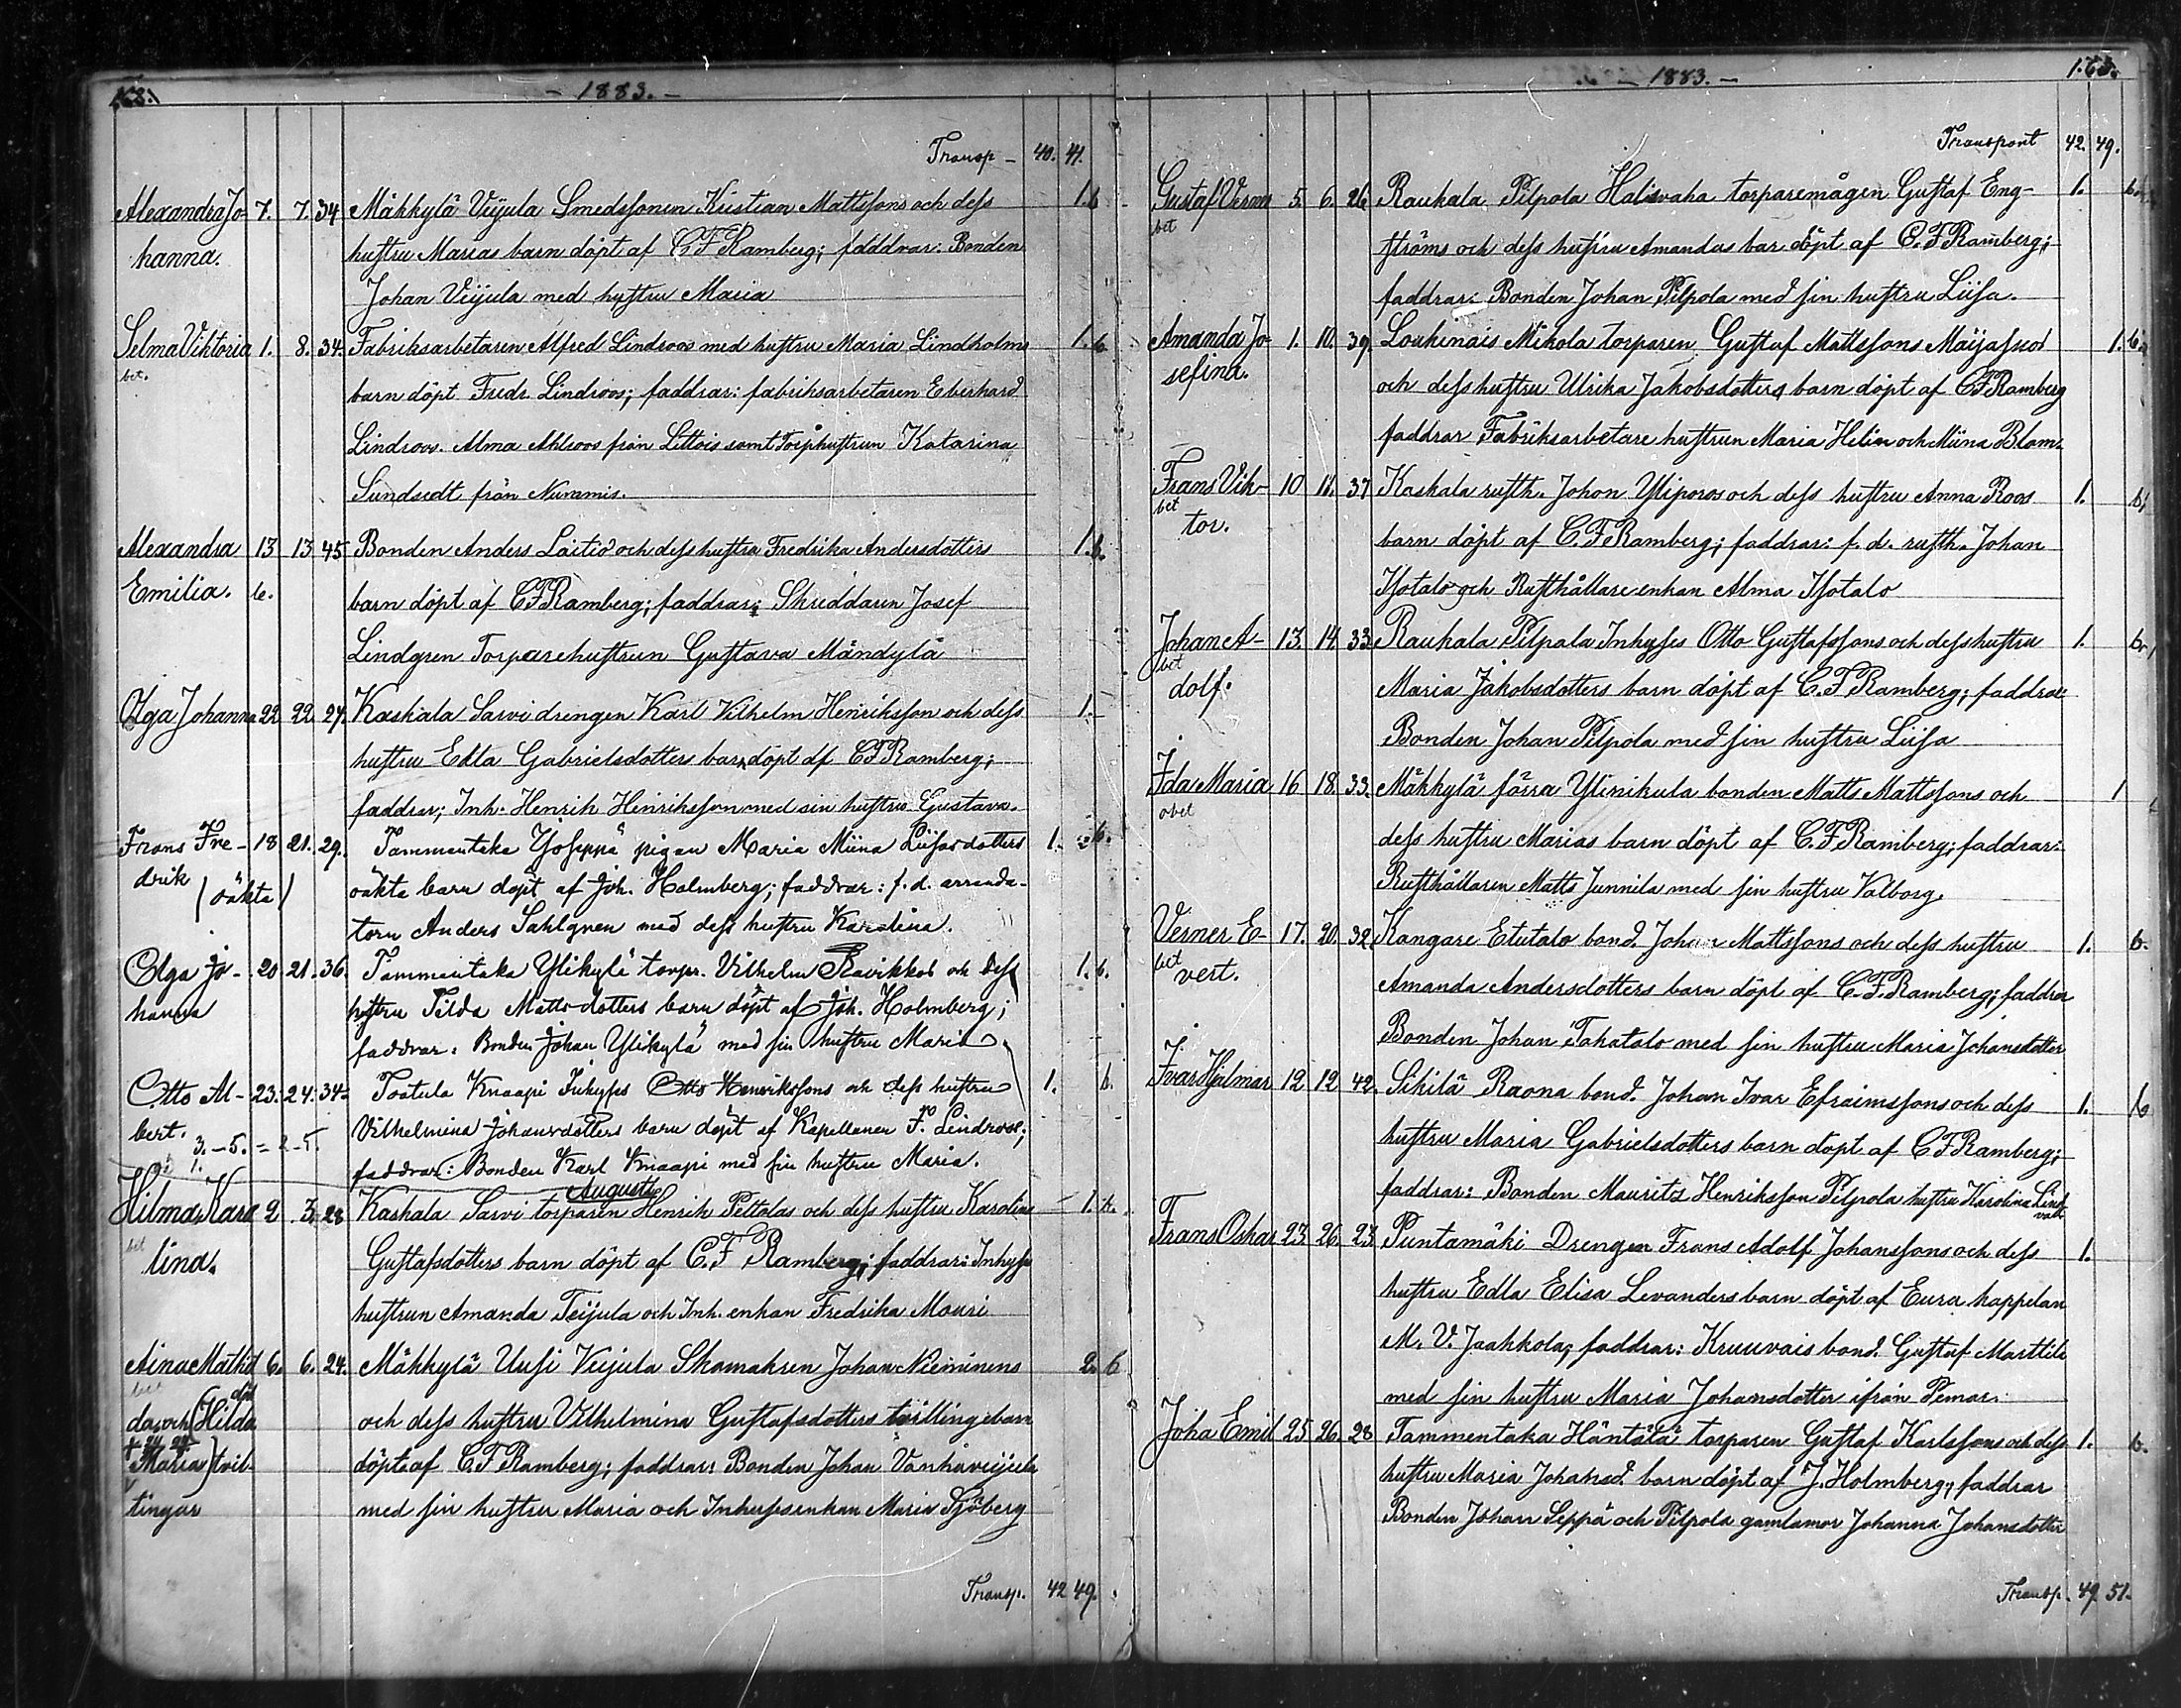 168.
- 1883. -
Transp - 40. 41.
Alexandra Jo- 7. 7. 34 Mäkkylä Vijula Smedssonen Kristian Mattssons och dess 1. b
hanna. hustru Marias barn döpt af C F Ramberg; faddrar: Bonden
Johan Vijula med hustru Maria
Selma Viktoria 1. 8. 34. Fabriksarbetaren Alfred Lindroos med hustru Maria Lindholms 1. b
bet. barn döpt Fredr. Lindroos; faddrar: fabriksarbetaren Eberhard
Lindroos. Alma Ahlroos från Littois samt Torphustrun Katarina
Sundsedt från Nummis.
Alexandra 13 13 45 Bonden Anders Laitio och dess hustru Fredrika Andersdotters 1. b.
Emilia. b. barn döpt af C F Ramberg; faddrar: Skreddaren Josef
Lindgren Torparehustrun Gustava Mändylä
Olga Johanna 22 22. 27. Kaskala Sarvi drengen Karl Vilhelm Henriksson och dess 1.
hustru Edla Gabrielsdotters barn döpt af C F Ramberg;
faddrar; Inh. Henrik Henriksson med sin hustru Gustava.
Frans Fre- 18 21. 29. Tammentaka Yloseppä pigan Maria Miina Liisasdotters 1. b.
drik (oäkta) oäkta barn döpt af Joh. Holmberg; faddrar: f. d. arrenda-
torn Anders Sahlgren med dess hustru Karolina.
Olga Jo- 20 21. 36. Tammentaka Ylikylä torpr. Vilhelm Ravikkos och dess 1. b.
hanna hustru Tilda Mattsdotters barn döpt af Joh. Holmberg;
faddrar: Bonden Johan Ylikylä med sin hustru Maria.
Otto Al- 23. 24. 34. Toatula Knaapi Inhyses Otto Henrikssons och dess hustru 1. b.
bert. Vilhelmina Johansdotters barn döpt af Kapellanen F. Lindroos;
3. - 5. = 2 - 5.
faddrar: Bonden Karl Knaapi med sin hustru Maria.
Augusti
Hilma Karo 2. 3. 28 Kaskala Sarvi torparen Henrik Peltolas och dess hustru Karolina 1. b.
bet lina. Gustafsdotters barn döpt af C. F Ramberg; faddrar: Inhyse
hustrun Amanda Teijula och Inh. enkan Fredrika Mouri
Aina Mathil 6. 6. 24. Mäkkylä Uusi Veijula Skomakren Johan Nieminens 2. b
da, och (Hilda och dess hustru Vilhelmina Gustafsdotters tvilling barn
Maria) tvil- döpt af C. F Ramberg; faddrar: Bonden Johan Vanhaveijula
lingar med sin hustru Maria och Inhysesenkan Maria Sjöberg
Transp. 42 49.
- 1883. -
Transport 42. 49.
Gustaf Verner 5. 6. 26 Raukala Pilpola Halisvaha torparemågen Gustaf Eng- 1. b.
bet ströms och dess hustru Amandas bar döpt af C. F Ramberg;
faddrar: Bonden Johan Pilpola med sin hustru Liisa.
Amanda Jo- 1. 10. 39. Loukinais Mikola torparen Gustaf Mattssons Maijasuo 1. b.
sefina. och dess hustru Ulrika Jakobsdotters barn döpt af C F Ramberg
faddrar Fabriksarbetare hustrun Maria Helin och Miina Blom.
Frans Vik- 10 11. 37 Kaskala rusth. Johan Yliporos och dess hustru Anna Roos 1. b
bet tor. barn döpt af C. F Ramberg; faddrar: f. d. rusth. Johan
Isotalo och Rusthållare enkan Alma Isotalo
Johan A- 13. 14. 33. Raukala Pilpala Inhyses Otto Gustafssons och dess hustru 1. b.
bet dolf. Maria Jakobsdotters barn döpt af C. F Ramberg; faddrar
Bonden Johan Pilpola med sin hustru Liisa
Ida Maria 16 18. 33. Mäkkylä förra Ylinikula bonden Matts Mattssons och 1
obet dess hustru Marias barn döpt af C. F Ramberg; faddrar:
Rusthållaren Matts Junnila med sin hustru Valborg.
Verner E- 17. 20. 32. Kangare Etutalo bond. Johan Mattssons och dess hustru 1. b.
bet vert. Amanda Andersdotters barn döpt af C. F. Ramberg; faddrar
Bonden Johan Takatalo med sin hustru Maria Johansdotter
Ivar Hjalmar 12 12 42. Sikilä Raona bond. Johan Ivar Efraimssons och dess 1. b
hustru Maria Gabrielsdotters barn döpt af C F Ramberg;
faddrar: Bonden Mauritz Henriksson Pilpola hustru Karolina Lind-
vall
Frans Oskar 23 26. 23 Puntamäki Drengen Frans Adolf Johanssons och dess 1.
hustru Edla Elisa Levanders barn döpt af Eura kappelan
M. V. Jaakkola; faddrar: Kruuvais bond. Gustaf Marttila
med sin hustru Maria Johansdotter ifrån Pemar.
Joha Emil 25 26. 28 Tammentaka Häntälä torparen Gustaf Karlssons och dess 1. b.
hustru Maria Johansd. barn döpt af J. Holmberg; faddrar
Bonden Johan Seppä och Pilpola gamlamor Johanna Johansdotter
Transp. 49 51.